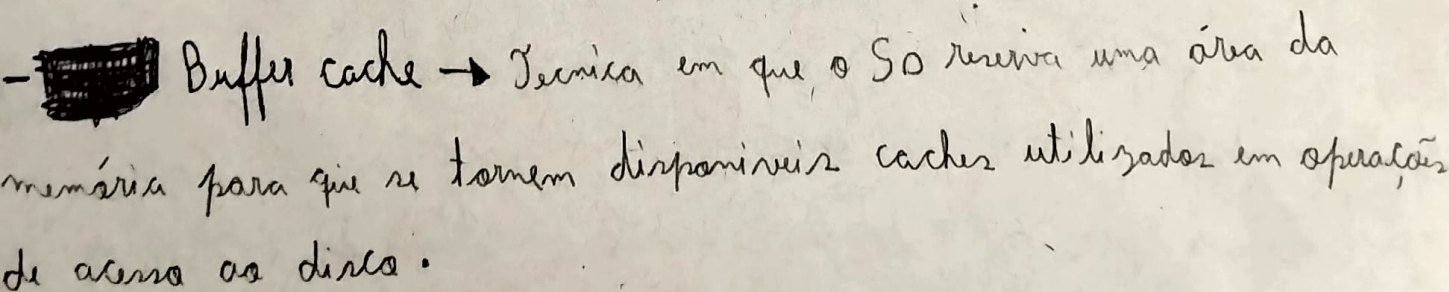 - Buffer cache → Tecnica em que o SO reserva uma área da
memória para que se tornem disponiveis caches utilizados em operações
de acesso ao disco.